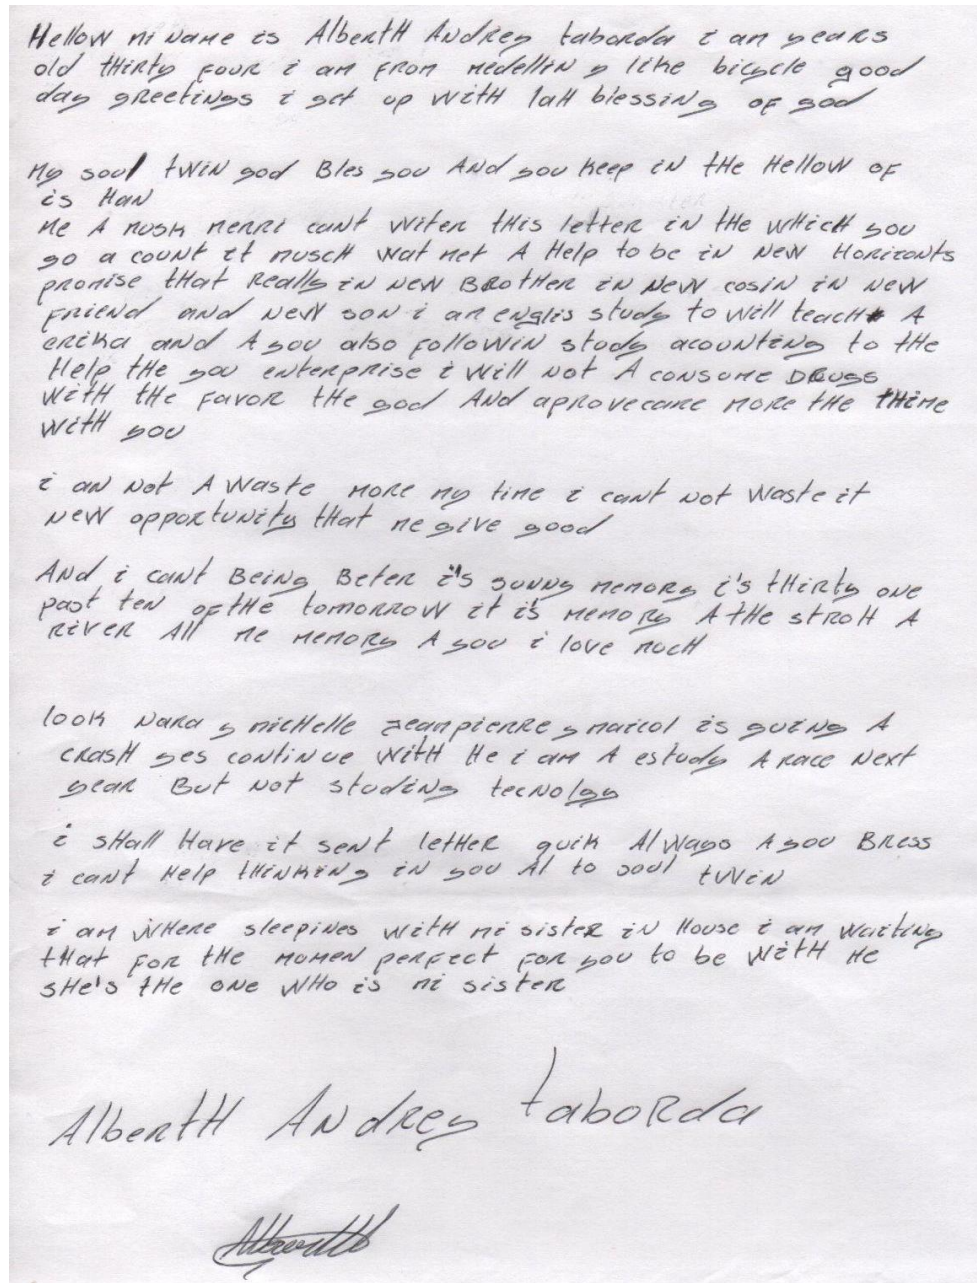 Hellow mi Name is AlbertH Andrey taborda i am years
old tHirty four i am from medellin y like bicycle good
day greetings i get up witH laH blessing of god
My soul twin god Bles you And you Keep in tHe Hellow of
is Han
Me A musk merri cant writer tHis letter in tHe wHicH you
go a count it muscH wat met A Help to be in New Horizonts
promise tHat Really in new BRotHer in New cosin in new
friend and new son i am englis study to will teacH A
erika and A you also followin study acounting to tHe
Help tHe you enterprise i will not A consume DRugs
witH tHe favor tHe god And aprovecare more tHe tHime
witH you
i am not A waste more my time i cant not waste it
new opportunity tHat me give good
And i cant Being Beter i's sunny memory i's tHirty one
past ten of tHe tomorrow it is memory A tHe stroH A
river All me memory A you i love mucH
look Nara y micHelle Jeanpierre y maicol is going A
crasH yes continue witH He i am A estudy A race Next
year But not studing tecnolgy
i sHall Have it sent letHer quik Always A you Bress
i cant Help tHinking in you Al to soul twin
i am wHere sleepines witH mi sister in House i am waiting
tHat for tHe momen perfect for you to be witH He
sHe's tHe one wHo is mi sister
AlbertH Andrey taborda